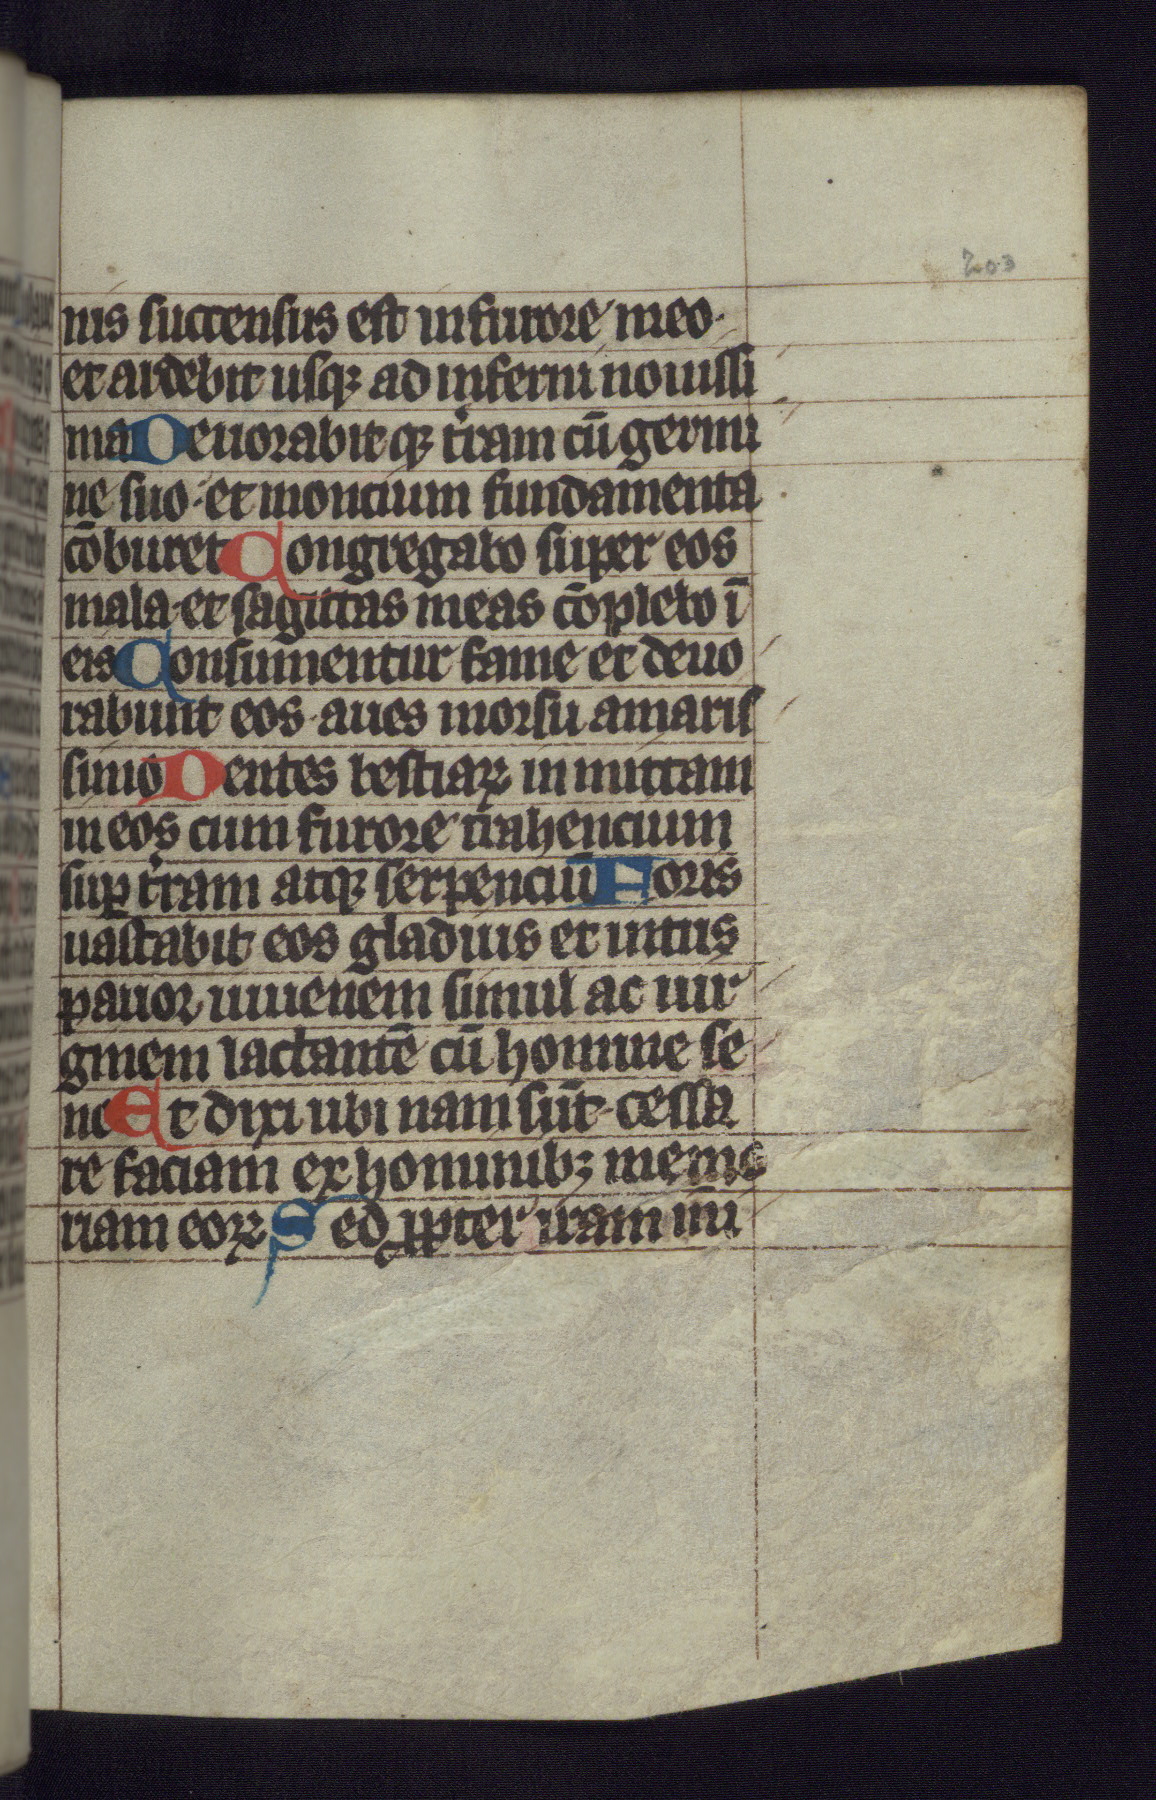 203
nis succensus est in furore meo·
et ardebit usqꝫ ad inferni nouissi
ma Deuorabitqꝫ t̾ram cū germi
ne suo· et moncium fundamenta
cōburet Congregabo super eos
mala· et sagittas meas cōplebo ī
eis Consumentur fame et deuo
rabunt eos· aues morsu amaris
simo Dentes bestiaꝝ in mittam
in eos cum furore trahencium
suꝑ t̾ram atqꝫ serpenciū Foris
uastabit eos gladius et intus
pauor iuuenem simul ac uir
ginem lactantē cū homine se
ne Et dixi ubi nam sūt· cessa
re faciam ex hominibꝫ memo
riam eoꝝ Sed ꝓpter iram inī